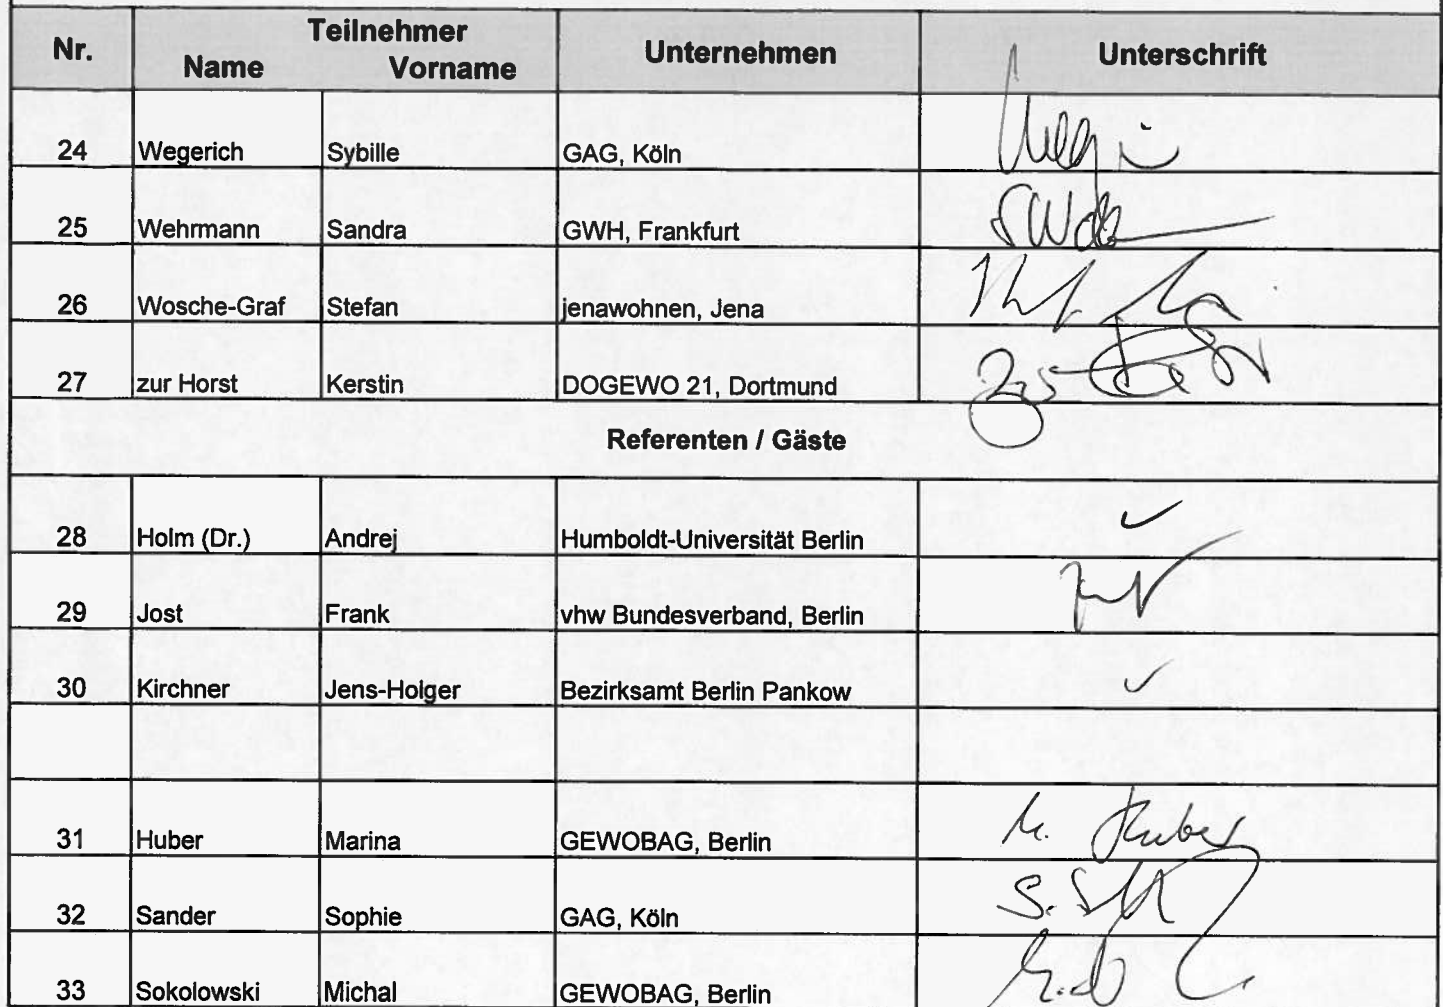 Nr. Teilnehmer Unternehmen Unterschrift
Name Vorname
24 Wegerich Sybille GAG, Köln
25 Wehrmann Sandra GWH, Frankfurt
26 Wosche-Graf Stefan jenawohnen, Jena
27 zur Horst Kerstin DOGEWO 21, Dortmund
Referenten / Gäste
28 Holm (Dr.) Andrej Humboldt-Universität Berlin ✓
29 Jost Frank vhw Bundesverband, Berlin
30 Kirchner Jens-Holger Bezirksamt Berlin Pankow ✓
31 Huber Marina GEWOBAG, Berlin M. Huber
32 Sander Sophie GAG, Köln
33 Sokolowski Michal GEWOBAG, Berlin